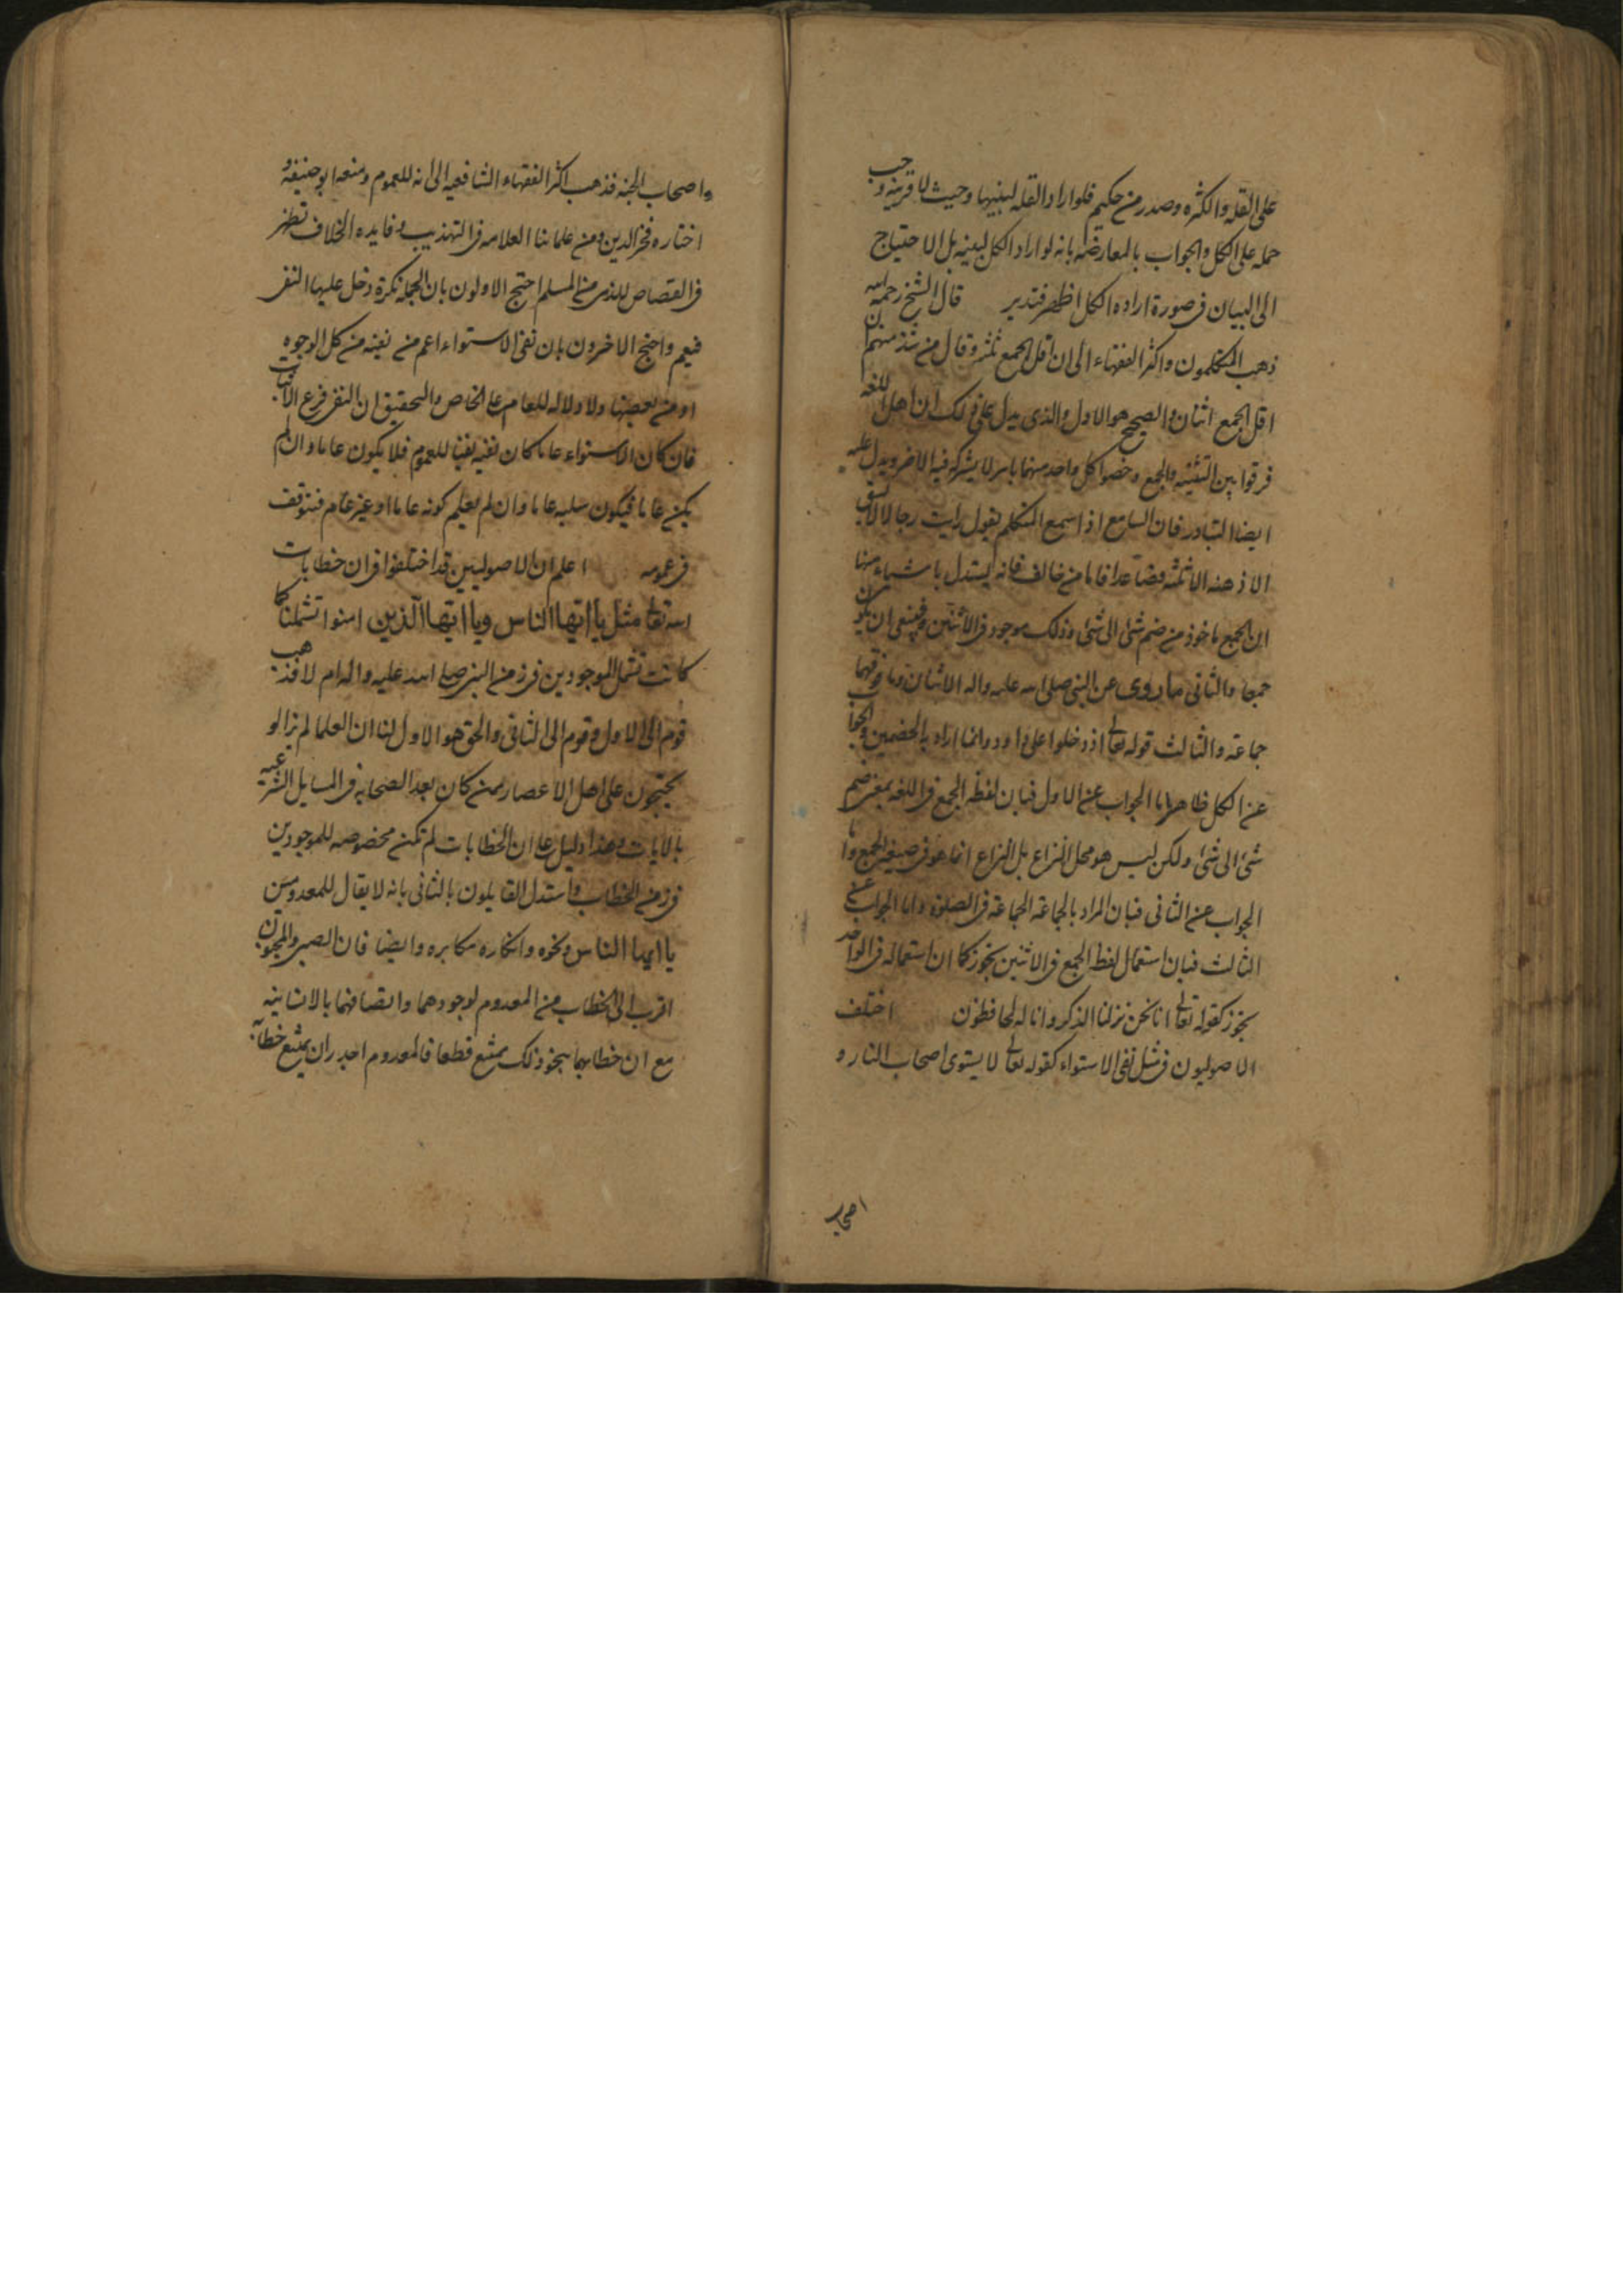 على القله والكثره وصدر من حكيم فلو اراد القله لبينها وحيث لا قرينه وجب
حمله على الكل والجواب بالمعارضه بانه لو اراد الكل لبينه بل الاحتياج
الى البيان فى صورة اراده الكل اظهر فتدبر قال الشيخ رحمه الله
ذهب المتكلمون واكثر الفقهاء الى ان اقل الجمع ثلثه وقال من شذ منهم ان
اقل الجمع اثنان والصحيح هو الاول والذى يدل على ذلك ان اهل اللغه
فرقوا بين التثنيه والجمع وخصوا كل واحد منهما بامر لا يشركه فيه الاخر ويدل عليه
ايضا التبادر فان السامع اذا سمع المتكلم يقول رايت رجالا لا يسبق
الا ذهنه الا ثلثه فصاعدا فاما من خالف فانه يستدل باشياء منها
ان الجمع ماخوذ من ضم شئ الى شئ وذلك موجود فى الاثنين فينبغى ان يكون
جمعا والثانى ما روى عن النبى صلى الله عليه واله الاثنان وما فوقهما
جماعة والثالث قوله تعالى اذ دخلوا على داود وانما اراد به الخصمين والجواب
عن الكل ظاهر اما الجواب عن الاول فبان لفظه الجمع فى اللغه بمعنى ضم
شئ الى شئ ولكن ليس هو محل النزاع بل النزاع انما هو فى صيغه الجمع واما
الجواب عن الثانى فبان المراد بالجماعة الجماعة فى الصلوة واما الجواب عن
الثالث فبان استعمال لفظ الجمع فى الاثنين يجوز كما ان استعماله فى الواحد
يجوز كقوله تعالى انا نحن نزلنا الذكر وانا له لحافظون اختلف
الاصوليون فى مثل نفى الاستواء كقوله تعالى لا يستوى اصحاب النار و
اصحاب
واصحاب الجنه فذهب اكثر الفقهاء الشافعيه الى انه للعموم ومنعه ابو حنيفة و
اختاره فخر الدين ومن علمائنا العلامه فى التهذيب وفايده الخلاف تظهر
فى القصاص للذمى من المسلم احتج الاولون بان الجمله نكرة دخل عليها النفى
فيعم واحتج الاخرون بان نفى الاستواء اعم من نفيه من كل الوجوه
او من بعضها ولا دلاله للعام على الخاص والتحقيق ان النفى فرع الاثبات
فان كان الاستواء عاما كان نفيه نفيا للعموم فلا يكون عاما وان لم
يكن عاما فيكون سلبه عاما وان لم يعلم كونه عاما او غير عام فنتوقف
فى عمومه اعلم ان الاصوليين قد اختلفوا فى ان خطابات
الله تعالى مثل يا ايها الناس ويا ايها الذين امنوا تشملنا كما
كانت تشمل الموجودين فى زمن النبى صلى الله عليه واله ام لا فذهب
قوم الى الاول وقوم الى الثانى والحق هو الاول لنا ان العلما لم يزالو
يحتجون على اهل الاعصار ممن كان بعد الصحابه فى المسايل الشرعيه
بالايات وهذا دليل على ان الخطابات لم تكن مخصوصه للموجودين
فى زمن الخطاب واستدل القايلون بالثانى بانه لا يقال للمعدومين
يا ايها الناس ونحوه وانكاره مكابره وايضا فان الصبى والمجنون
اقرب الى الخطاب من المعدوم لوجودهما واتصافهما بالانسانيه
مع ان خطابهما بنحو ذلك يمتنع قطعا فالمعدوم اجدر ان يمتنع خطابه